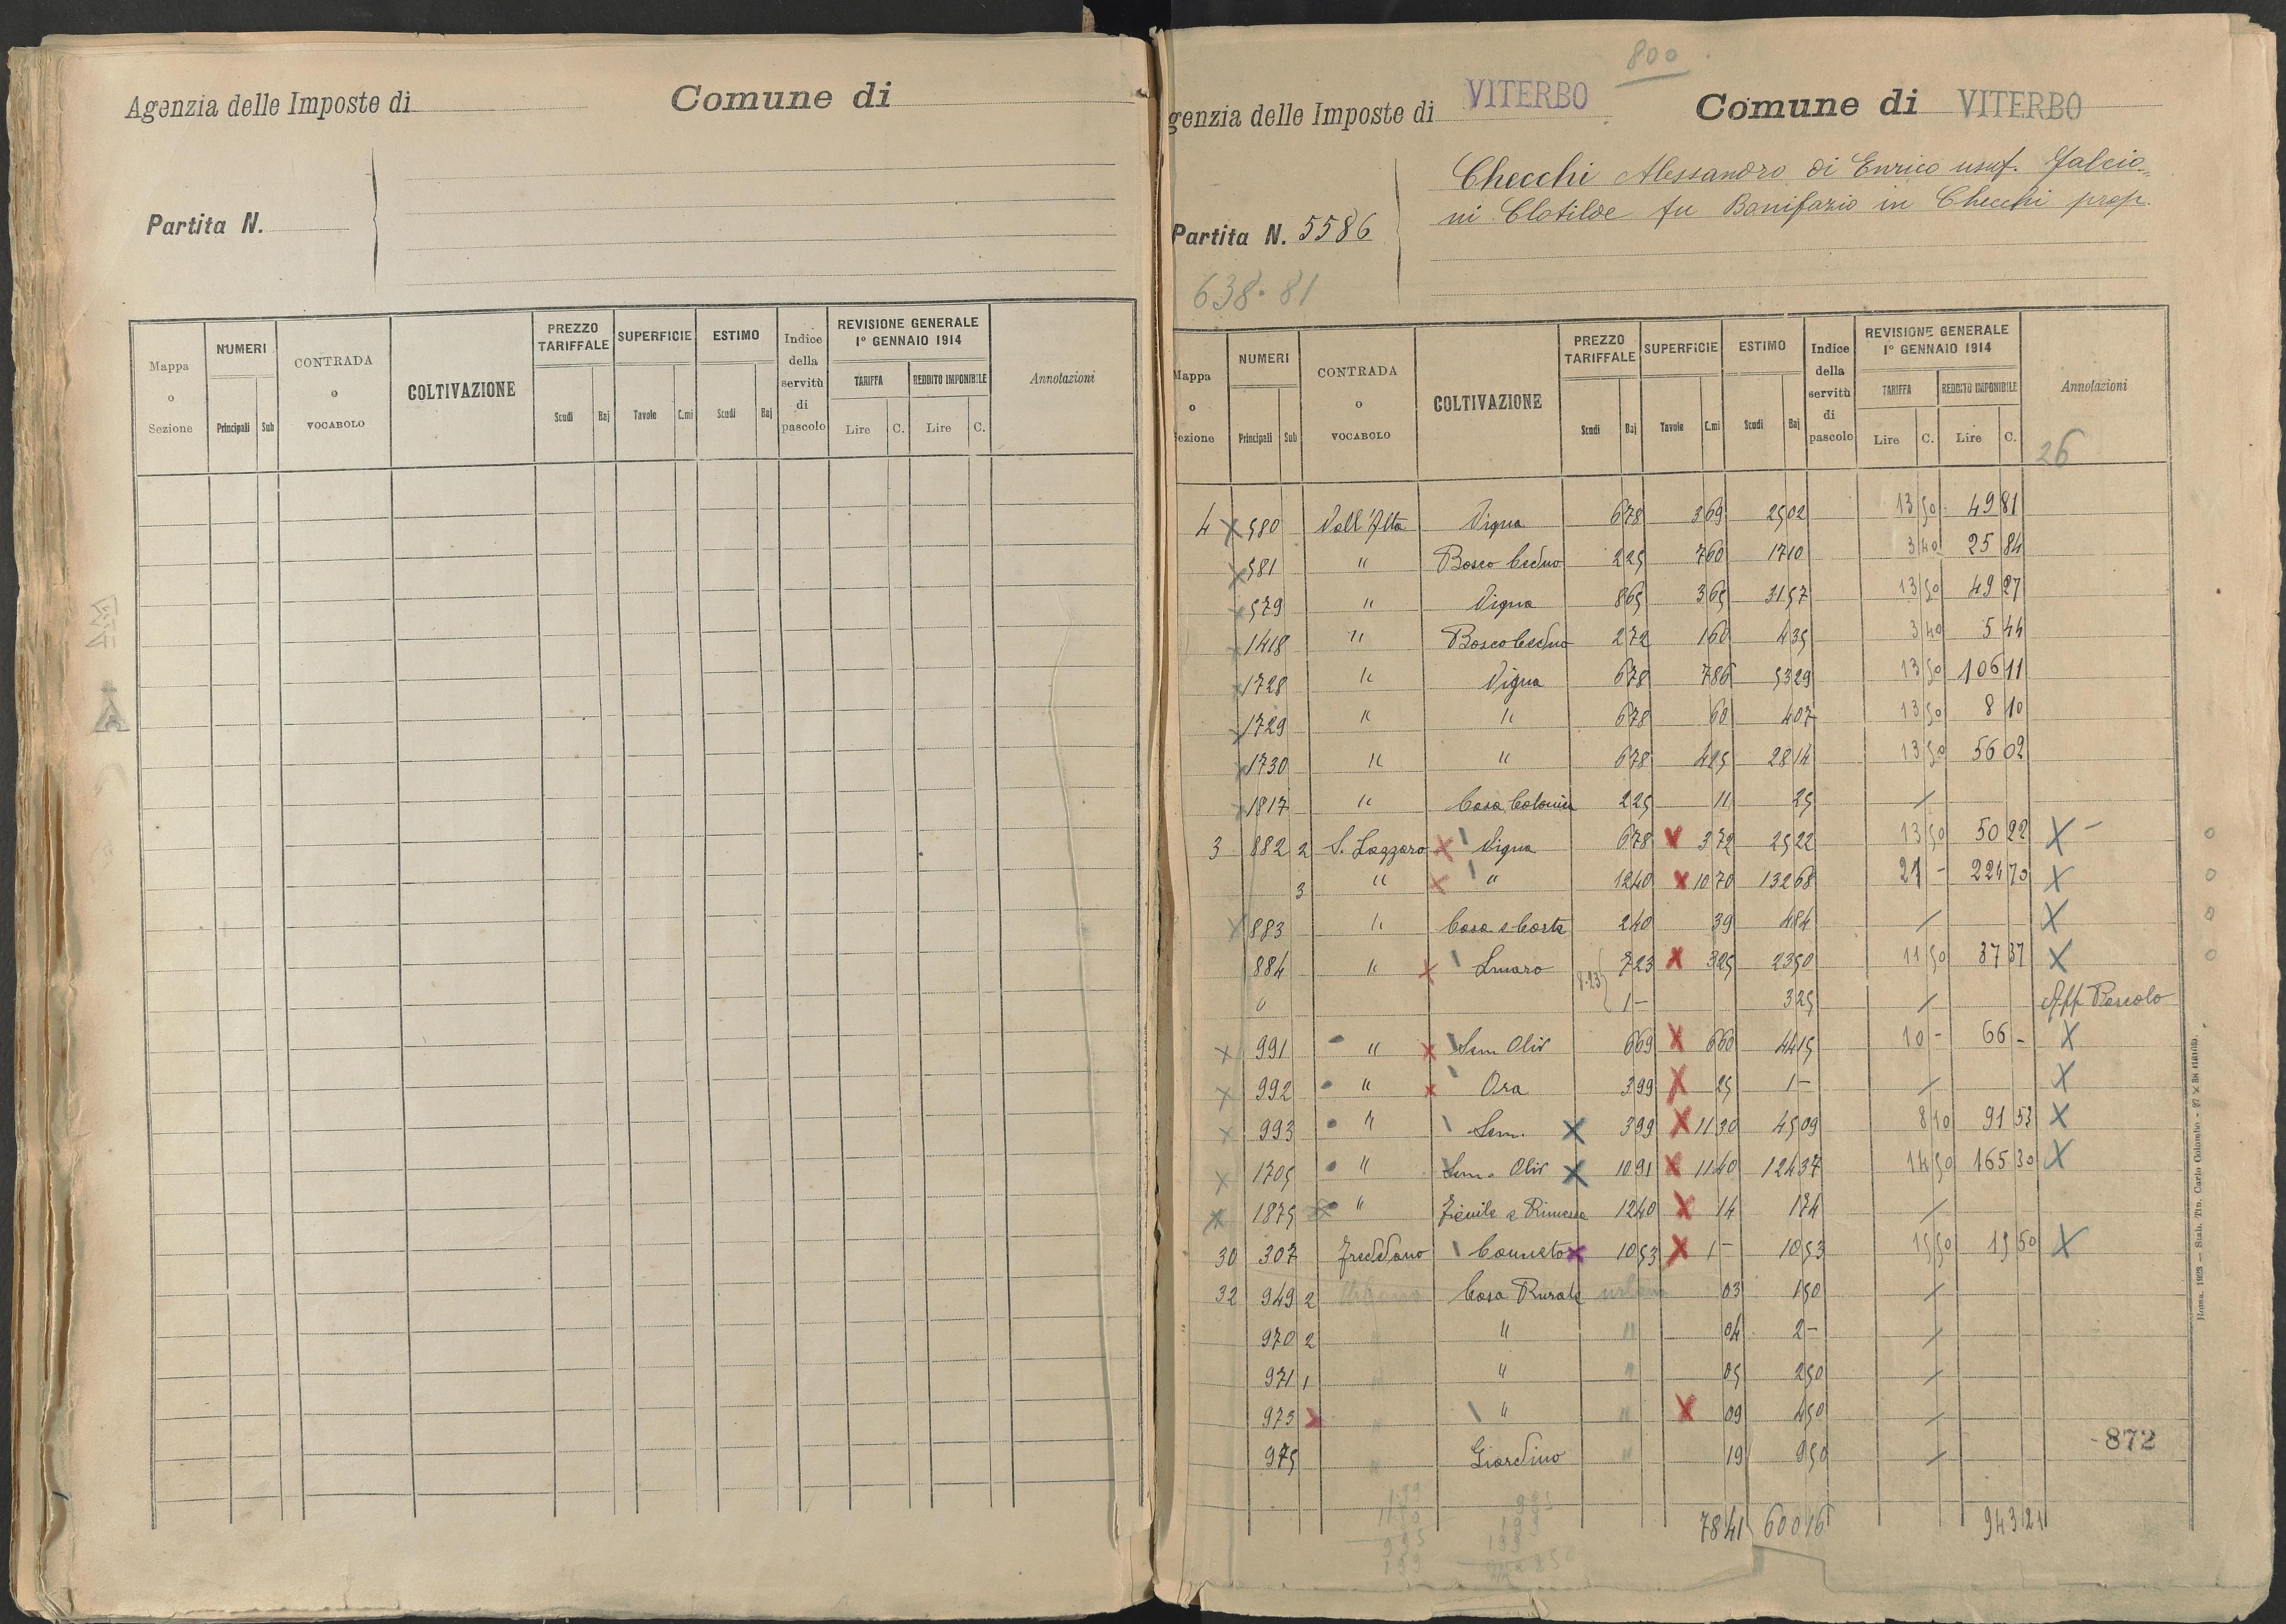 Agenzia delle Imposte di
Comune di
Partita N.
Mappa o Sezione
NUMERI
Principali Sub
CONTRADA o VOCABOLO
COLTIVAZIONE
PREZZO TARIFFALE
Scudi Baj
SUPERFICIE
Tavole C.mi
ESTIMO
Scudi Baj
Indice della servitù di pascolo
REVISIONE GENERALE
1° GENNAIO 1914
TARIFFA
Lire C.
REDDITO IMPONIBILE
Lire C.
Annotazioni
800
genzia delle Imposte di VITERBO
Comune di VITERBO
Partita N. 5586
638.81
Checchi Alessandro di Enrico usuf. Falcio=
ni Clotilde fu Bonifazio in Checchi prop.
Mappa o Sezione
NUMERI
Principali Sub
CONTRADA o VOCABOLO
COLTIVAZIONE
PREZZO TARIFFALE
Scudi Baj
SUPERFICIE
Tavole C.mi
ESTIMO
Scudi Baj
Indice della servitù di pascolo
REVISIONE GENERALE
1° GENNAIO 1914
TARIFFA
Lire C.
REDDITO IMPONIBILE
Lire C.
Annotazioni
26
4 X 580 Vall'Alta Vigna 6 78 3 69 25 02 13 50 49 81
X 581 " Bosco Ceduo 2 25 7 60 17 10 3 40 25 84
X 579 " Vigna 8 65 3 65 31 57 13 50 49 27
X 1418 " Bosco Ceduo 2 72 1 60 4 35 3 40 5 44
X 1728 " Vigna 6 78 7 86 53 29 13 50 106 11
X 1729 " " 6 78 60 4 07 13 50 8 10
X 1730 " " 6 78 4 15 28 14 13 50 56 02
X 1817 " Casa Colonica 2 25 11 25 /
3 882 2 S. Lazzaro X Vigna 6 78 X 3 72 25 22 13 50 50 22 X -
3 " X " 12 40 X 10 70 132 68 21 - 224 70 X
X 883 " Casa e Corte 2 40 39 4 84 / X
884 " X 7 23 X 3 25 23 50 11 50 37 37 X
" 8.23 1 - 3 25 / Aff Pascolo
X 991 " X Sem Oliv 6 69 X 6 60 44 15 10 - 66 - X
X 992 " X Ora 3 99 X 25 1 - / X
X 993 " Sem. X 3 99 X 11 30 45 09 8 10 91 53 X
X 1705 " Sem. Oliv X 10 91 X 11 40 124 37 14 50 165 30 X
X 1875 X " Fienile e Rimessa 12 40 X 14 1 74 /
30 307 Freddano Canneto X 10 53 X 1 - 10 53 15 50 15 50 X
32 949 2 Urbano Casa Rurale urbana 03 1 50 /
970 2 " " " 04 2 - /
971 1 " " " 05 2 50 /
973 X " " " X 09 4 50 /
975 " Giardino " 19 9 50 /
872
78 41 600 16 943 21
Roma, 1923 — Stab. Tip. Carlo Colombo